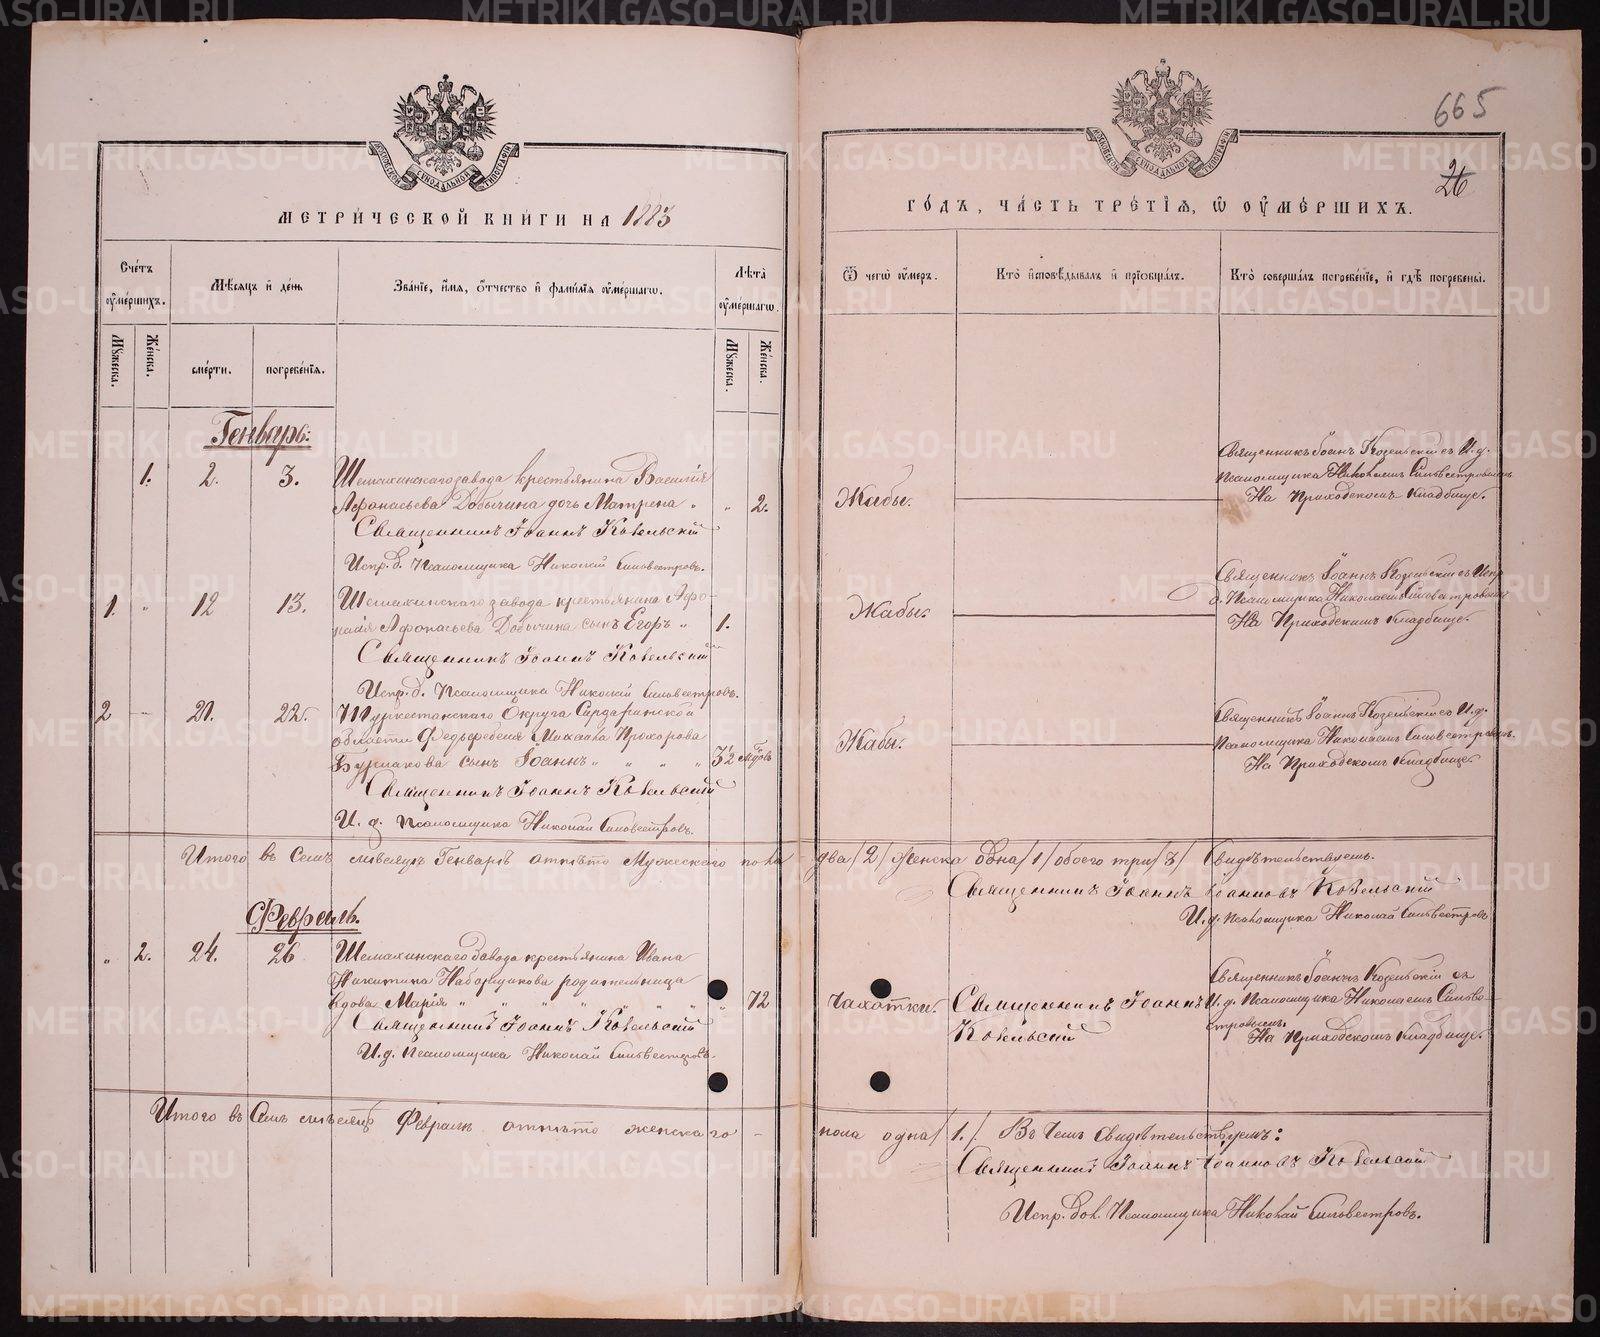 665
26
МЕТРИ́ЧЕСКОЙ КНИ́ГИ НА 1883
ГО́ДЪ, ЧА́СТЬ ТРЕ́ТІЯ, Ѡ ОУМЕ́РШИХЪ.
Сче́тъ оуме́ршихъ.
Мѣ́сяцъ и де́нь
Зва́ніе, и́мя, о́тчество и фами́лія оуме́ршагω.
Лѣта̀ оуме́ршагω.
Ѿ чегὼ оу́меръ.
Кто̀ исповѣ́дывалъ и пріобща́лъ.
Кто̀ соверша́лъ погребе́ніе, и гдѣ̀ погребены̀.
Мꙋжеска.
Же́нска.
сме́рти.
погребе́нія.
Мꙋжеска.
Же́нска.
Генварь:
1. 2. 3. Шемахинскаго завода крестьянина Василія
Афонасьева Добычина дочь Матрена „ „ 2.
Священникъ Іоаннъ Козельскій
Испр. д. Псаломщика Николай Сильвестровъ.
Жабы.
Священникъ Іоаннъ Козельскій съ И. д.
Псаломщика Николаемъ Сильвестровымъ
На Приходскомъ кладбище.
1. „ 12 13. Шемахинскаго завода крестьянина Афо-
насія Афонасьева Добычина сынъ Егоръ „ 1.
Священникъ Іоаннъ Козельскій
Испр. д. Псаломщика Николай Сильвестровъ.
Жабы.
Священникъ Іоаннъ Козельскій съ Испр
д. Псаломщика Николаемъ Сильвестровымъ
На Приходскомъ кладбище.
2 — 21. 22. Туркестанскаго Округа Сырдаринской
области Михаила Прохорова
Бурмакова сынъ Іоаннъ „ „ „ „ 3½ мѣсяцъ
Священникъ Іоаннъ Козельскій
И. д. Псаломщика Николай Сильвестровъ.
Жабы.
Священникъ Іоаннъ Козельскій съ И. д.
Псаломщика Николаемъ Сильвестровымъ.
На Приходскомъ кладбище.
Итого въ семъ месяцѣ Генварѣ отпѣто Мужескаго пола два /2/ Женска одна /1/ обоего три /3/ Свидѣтельствуемъ.
Священникъ Іоаннъ Іоанновъ Козельскій
И. д. Псаломщика Николай Сильвестровъ
Февраль.
„ 2. 24. 26 Шемахинскаго завода крестьянина Ивана
Никитина Наборщикова родительница
вдова Марія „ „ „ „ „ „ „ 72
Священникъ Іоаннъ Козельскій
И. д. Псаломщика Николай Сильвестровъ.
Чахотки.
Священникъ Іоаннъ
Козельскій
Священникъ Іоаннъ Козельскій съ
И. д. Псаломщика Николаемъ Сильве-
стровымъ
На Приходскомъ кладбище.
Итого въ семъ месяцѣ Февралѣ отпѣто женскаго — пола одна /1./. Въ чемъ свидѣтельствуемъ:
Священникъ Іоаннъ Іоанновъ Козельскій
Испр. дол. Псаломщика Николай Сильвестровъ.
METRIKI.GASO-URAL.RU